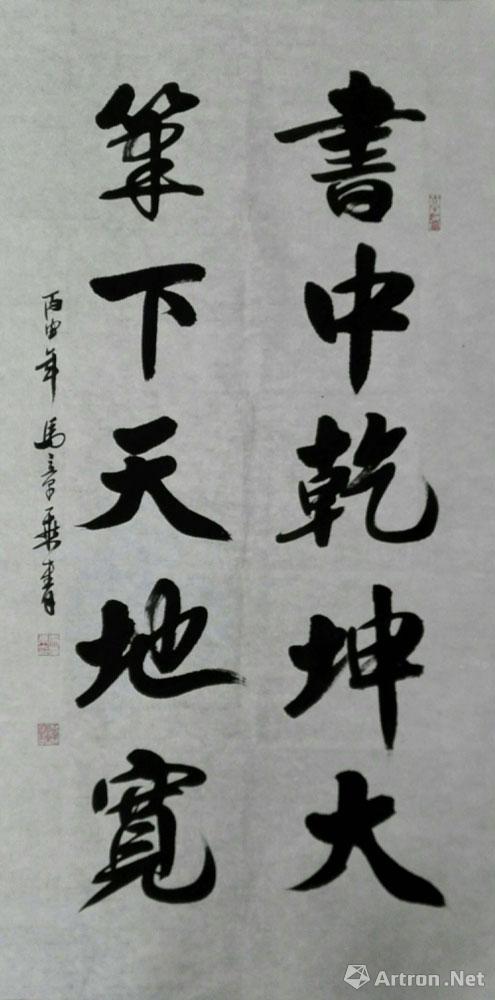 書中乾坤大
筆下天地寬
丙申年 馬章乘書
Artron.Net